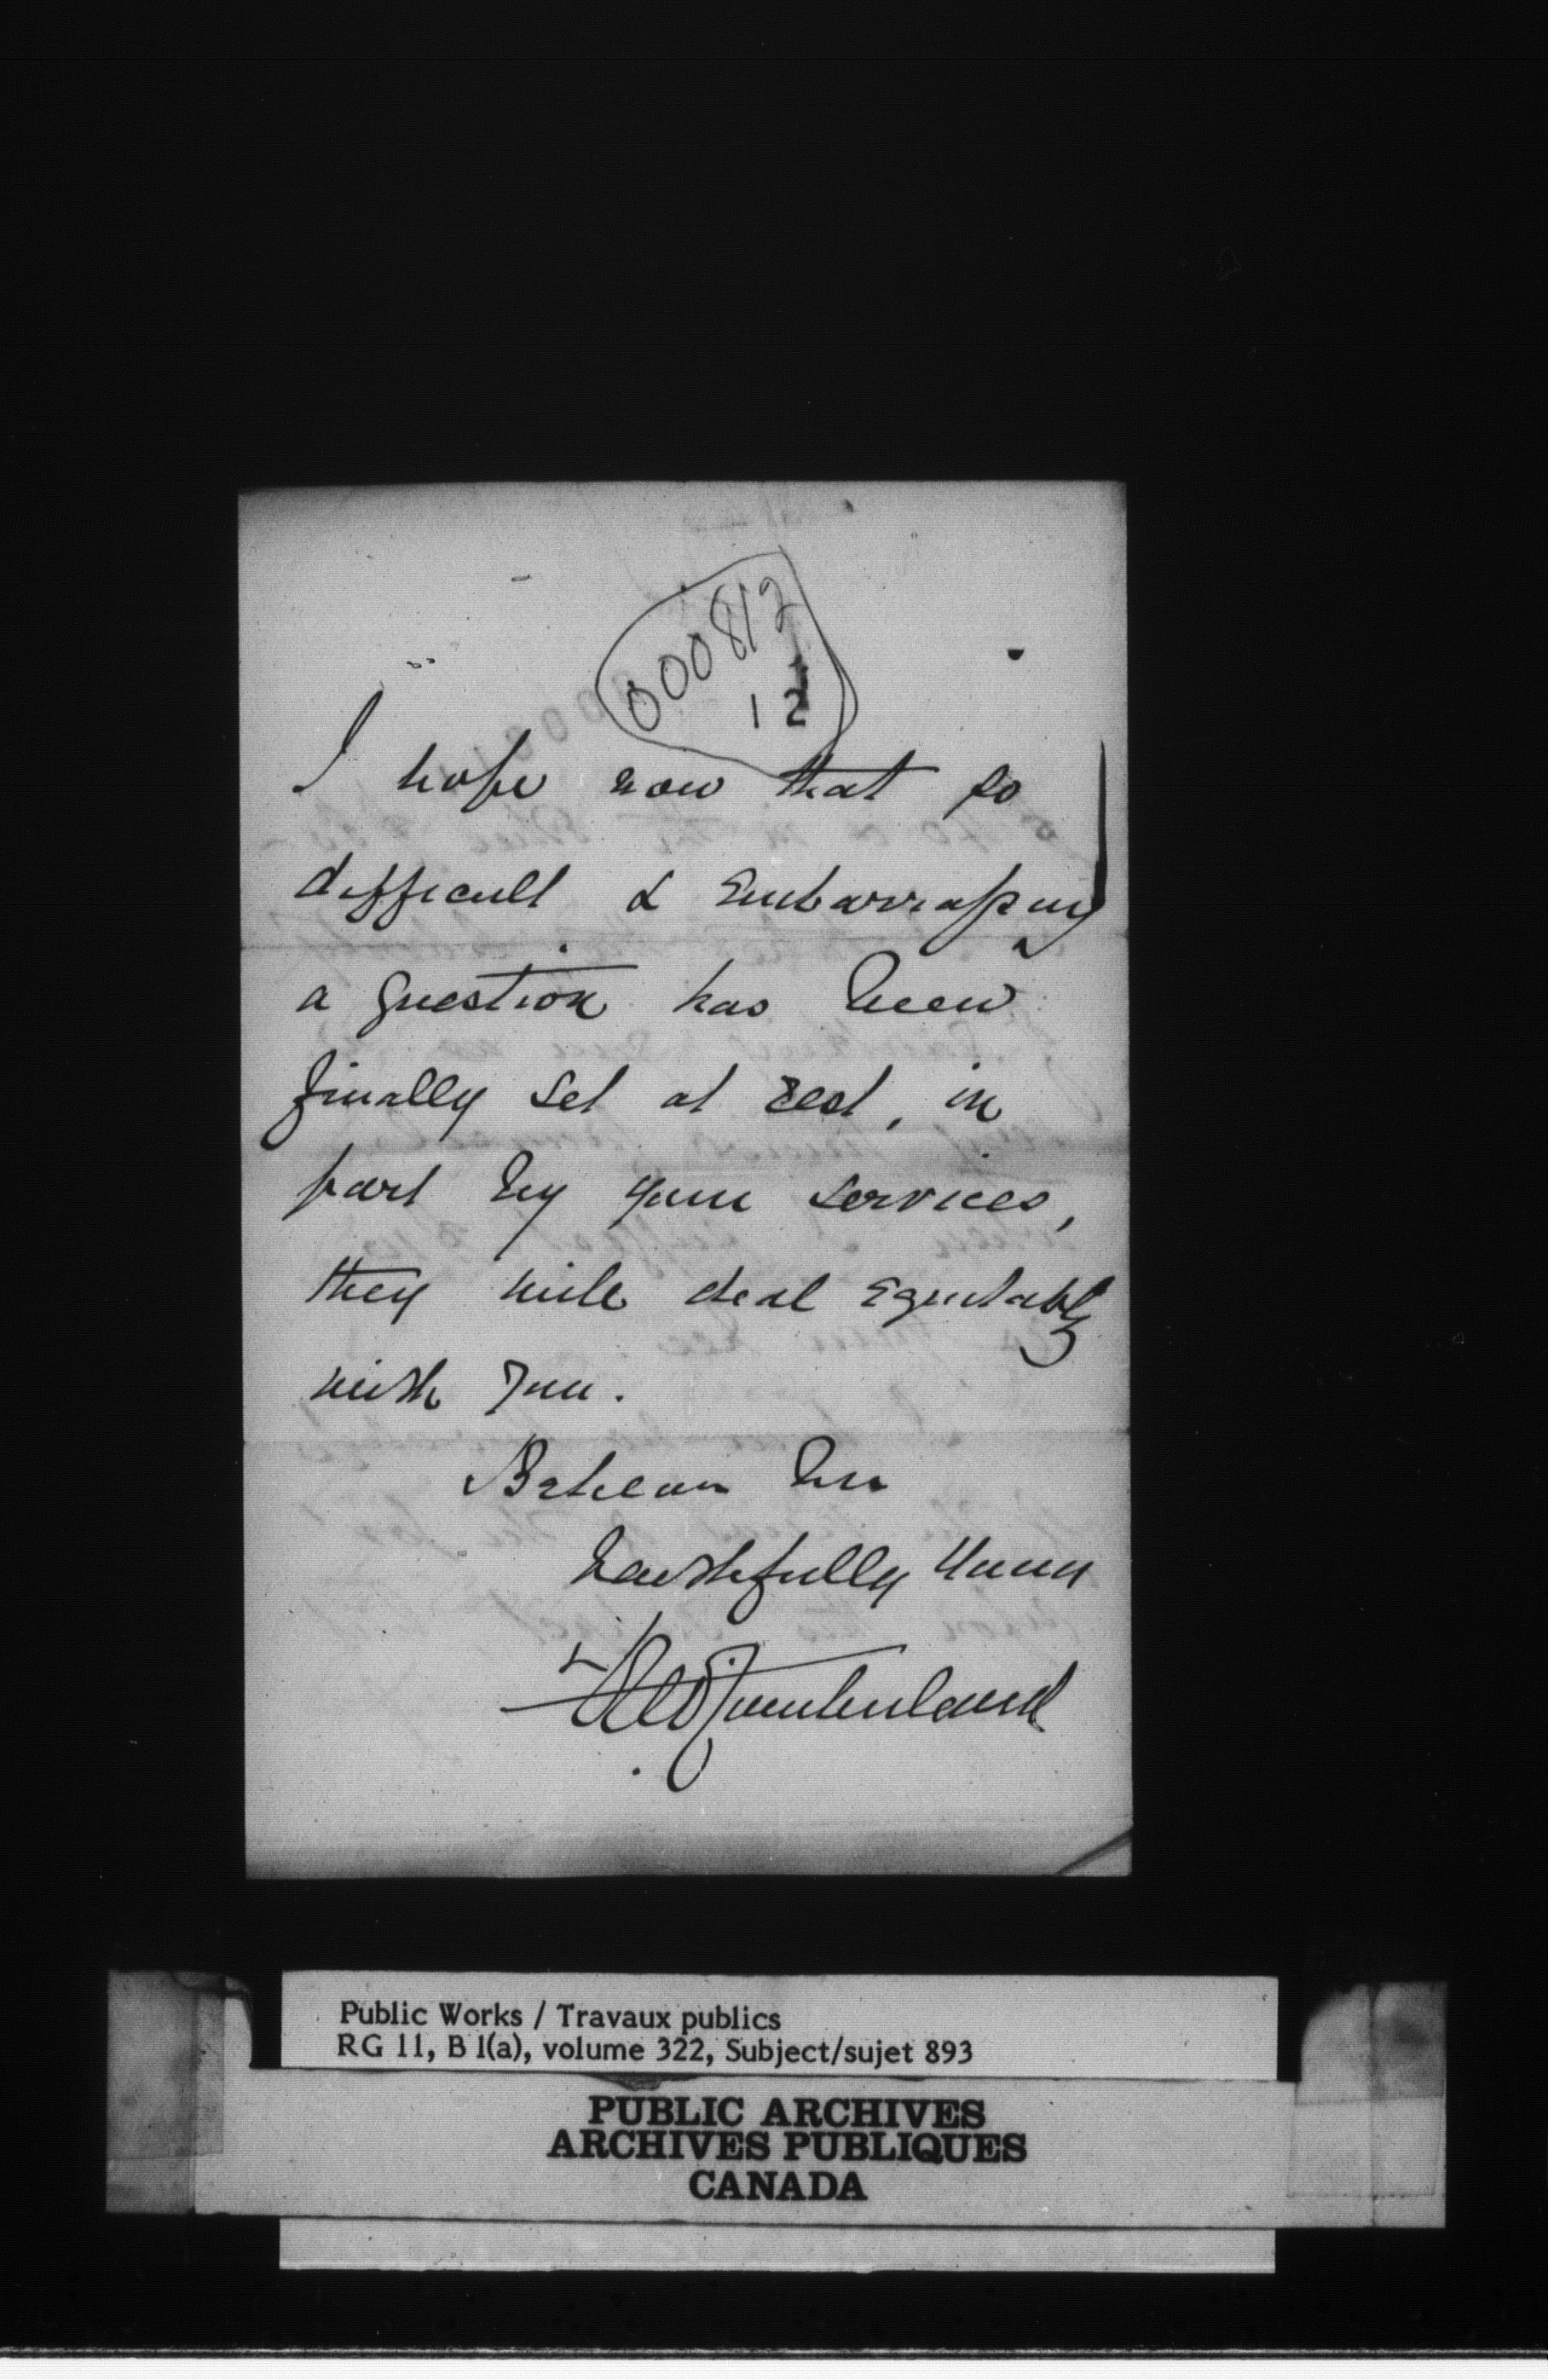 000812
12
I hope now that so
difficult & Embarrassing
a question has been
finally set at rest, in
part by your services,
they will deal Equitably
with you.
Believe me
Faithfully Yours
Cumberland
Public Works / Travaux publics
RG 11, B 1(a), volume 322, Subject/sujet 893
PUBLIC ARCHIVES
ARCHIVES PUBLIQUES
CANADA